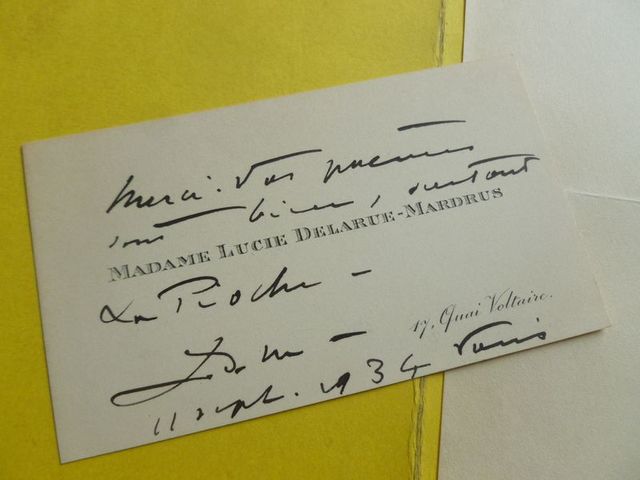 Merci. Vos poèmes
sont bien, surtout
MADAME LUCIE DELARUE-MARDRUS
La Pioche –
17, Quai Voltaire.
L D M –
11 sept. 1934 Paris